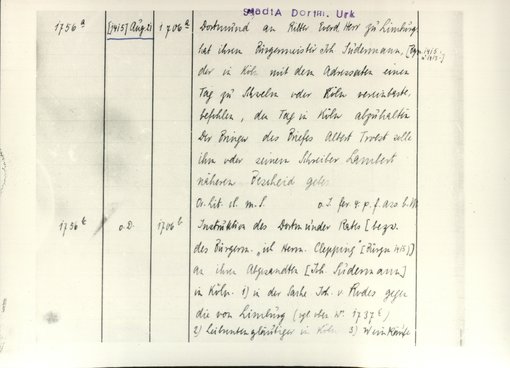 StadtA Dortm. Urk
1756ᵃ [1415] Aug. 21 1706ᵃ Dortmund an Ritter Everd Herr zu Limburg:
hat ihren Bürgermeister Joh Südermann, [Bgm 1415
der in Köln mit dem Adressaten einen
Tag zu Schwelm oder Köln vereinbarte,
befohlen, den Tag in Köln abzuhalten
Der Bringer des Briefes Albert Trost solle
ihm oder seinem Schreiber Lambert
näheren Bescheid geben
Or. lit. cl. m. s.
1756ᵇ o.D. 1706ᵇ Instruktion des Dortmunder Rates [bezw.
des Bürgerm. Herm. Clepping (Bürgm 1415)]
an ihren Abgesandten [Joh. Südermann]
in Köln. 1) in der Sache Joh. v. Rodes gegen
die von Limburg (vgl. oben Nr. 1737ᵇ)
2) Leibrentengläubiger in Köln 3) Weinkäufe